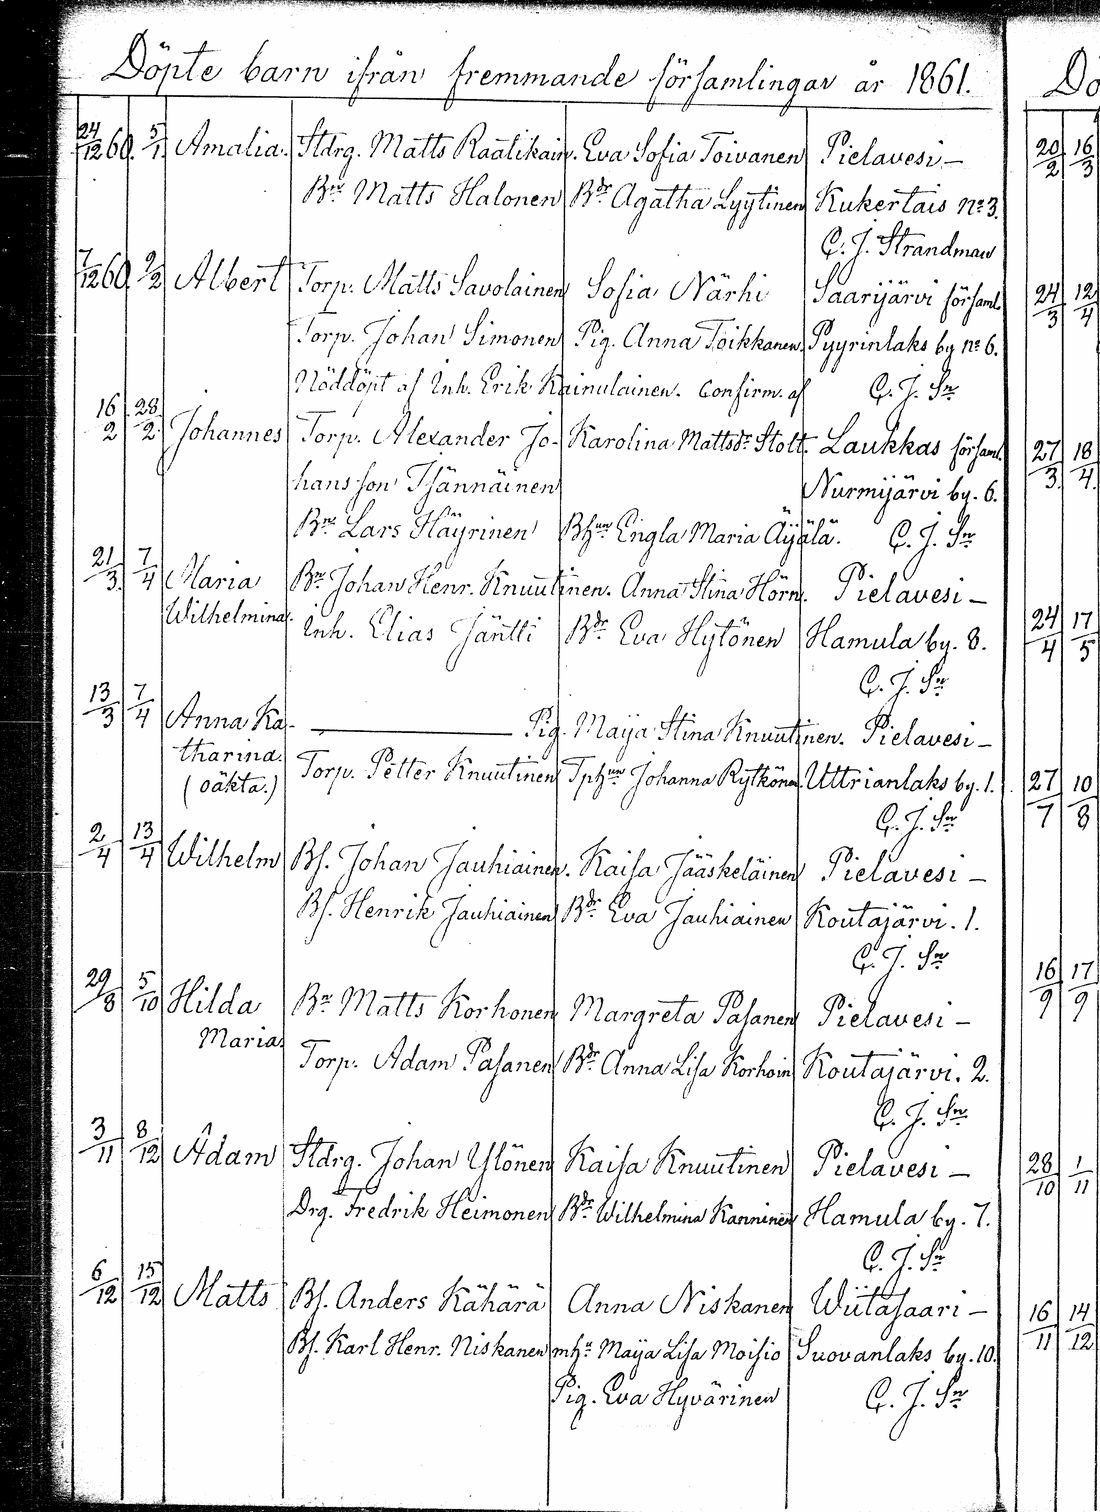 Döpte barn ifrån fremmande församlingar år 1861.
24/12 60. 5/1 Amalia. Stdrg. Matts Raatikain. Eva Sofia Toivanen Pielavesi –
Bn. Matts Halonen Bdr. Agatha Lyytinen Kukertais No 3.
C. J. Strandman
7/12 60. 2/2 Albert Torp. Matts Savolainen Sofia Närhi Saarijärvi församl.
Torp. Johan Simonen Pig. Anna Toikkanen. Pyyrinlaks by No 6.
Nöddöpt af Inh. Erik Kainulainen. Confirm. af C. J. Sn
16/2 28/2 Johannes Torp. Alexander Jo- Karolina Mattsdr. Stolt. Laukkas församl.
hansson Tjännäinen Nurmijärvi by. 6.
Bn. Lars Häyrinen Bhun Engla Maria Äyjälä. C. J. Sn
21/3. 7/4 Maria Bn. Johan Henr. Knuutinen. Anna Stina Hörn. Pielavesi –
Wilhelmina. Inh. Elias Jäntti Bdr. Eva Hytönen Hamula by. 8.
C. J. Sn
13/3 7/4 Anna Ka- Pig. Maija Stina Knuutinen. Pielavesi –
tharina. Torp. Petter Knuutinen Tphun Johanna Rytkönen. Uttrianlaks by. 1.
(oäkta.) C. J. Sn
2/4 13/4 Wilhelm Bs. Johan Jauhiainen. Kaisa Jääskeläinen Pielavesi –
Bs. Henrik Jauhiainen Bdr. Eva Jauhiainen Koutajärvi. 1.
C. J. Sn
29/8 5/10 Hilda Bn. Matts Korhonen Margreta Pasanen Pielavesi –
Maria. Torp. Adam Pasanen Bdr. Anna Lisa Korhoin Koutajärvi. 2.
C. J. Sn
3/11 8/12 Adam Stdrg. Johan Ylönen Kaisa Knuutinen Pielavesi –
Drg. Fredrik Heimonen Bdr. Wilhelmina Kanninen Hamula by. 7.
C. J. Sn
6/12 15/12 Matts Bs. Anders Kähärä Anna Niskanen Wiitasaari –
Bs. Karl Henr. Niskanen mhu. Maija Lisa Moisio Suovanlaks by. 10.
Pig. Eva Hyvärinen C. J. Sn
Dö
20/2 16/3
24/3 12/4
27/3. 18/4.
24/4 17/5
27/7 10/8
16/9 17/9
28/10 1/11
16/11 14/12